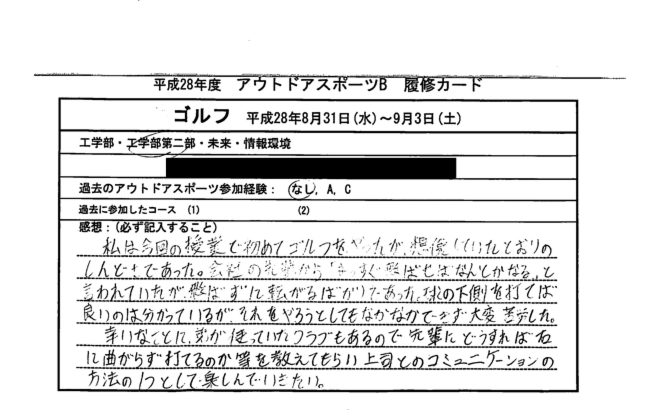 平成28年度 アウトドアスポーツB 履修カード
ゴルフ 平成28年8月31日(水)～9月3日(土)
工学部・工学部第二部・未来・情報環境
過去のアウトドアスポーツ参加経験：なし, A, C
過去に参加したコース (1) (2)
感想：(必ず記入すること)
私は今回の授業で初めてゴルフをやったが、想像していたとおりの
しんどさであった。会社の先輩から「まっすぐ飛ばせばなんとかなる。」と
言われていたが、飛ばずに転がるばかりであった。球の下側を打てば
良いのは分かっているが、それをやろうとしてもなかなかできず大変苦労した。
幸いなことに、弟が使っていたクラブもあるので先輩にどうすれば右
に曲がらず打てるのか等を教えてもらい上司とのコミュニケーションの
方法の1つとして楽しんでいきたい。